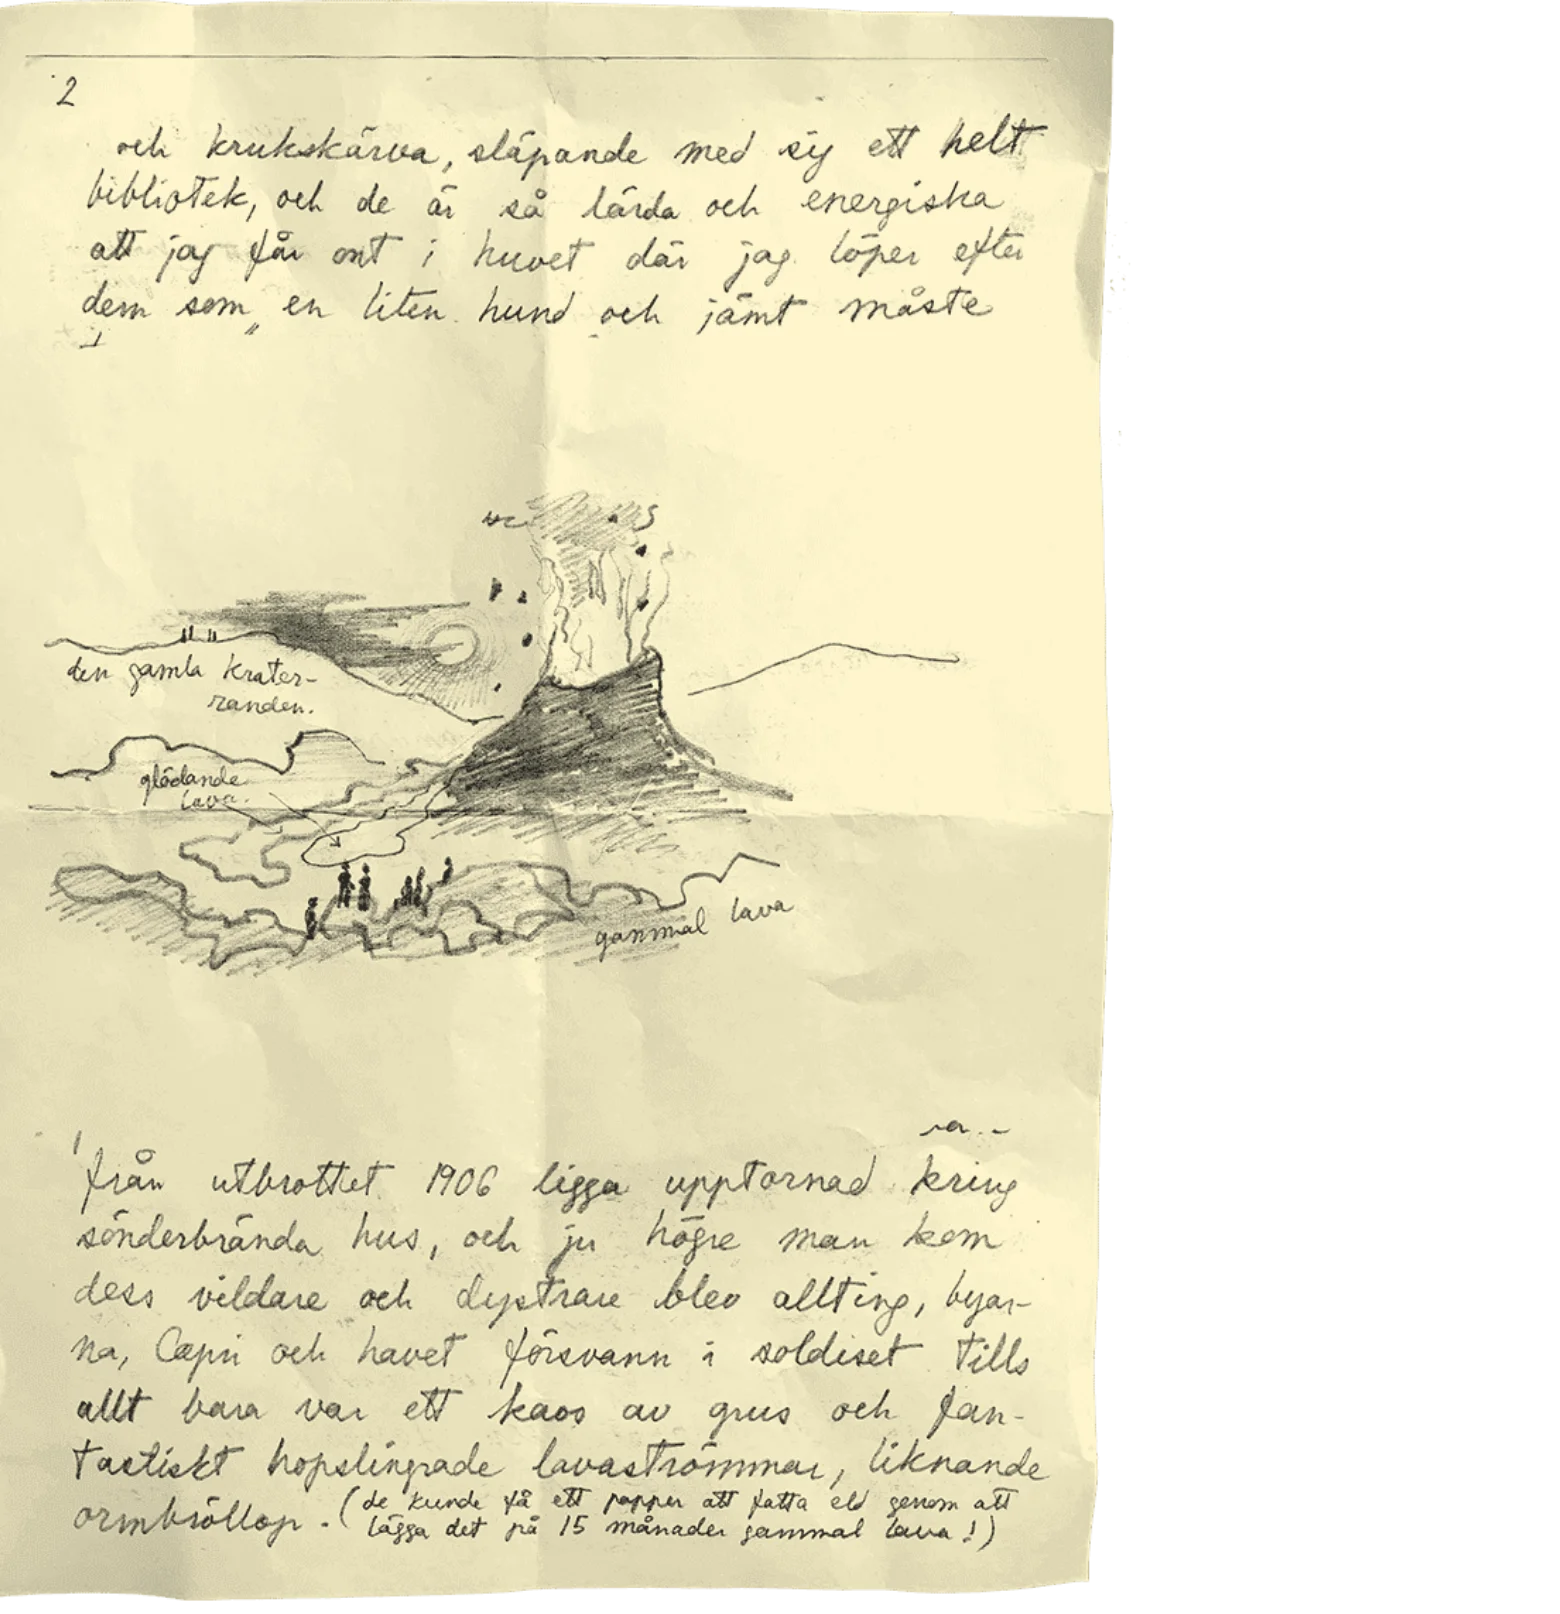 2
och krukskärva, släpande med sig ett helt
bibliotek, och de är så lärda och energiska
att jag får ont i huvet där jag löper efter
dem som en liten hund och jämt måste
den gamla krater-
randen.
glödande
lava.
gammal lava
från utbrottet 1906 ligga upptornad kring
sönderbrända hus, och ju högre man kom
dess vildare och dystrare blev allting, byar-
na, Capri och havet försvann i soldiset tills
allt bara var ett kaos av grus och fan-
tastiskt hopslingrade lavaströmmar, liknande
ormbröllop. (de kunde få ett papper att fatta eld genom att
lägga det på 15 månader gammal lava!)